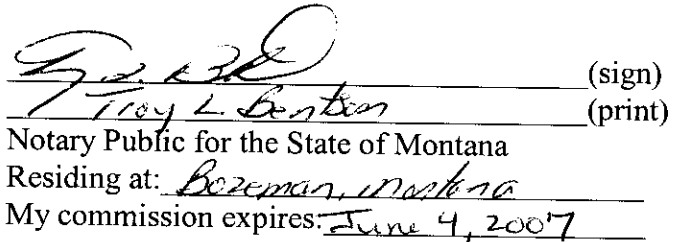 (sign)
Troy L. Bentson (print)
Notary Public for the State of Montana
Residing at: Bozeman, Montana
My commission expires: June 4, 2007